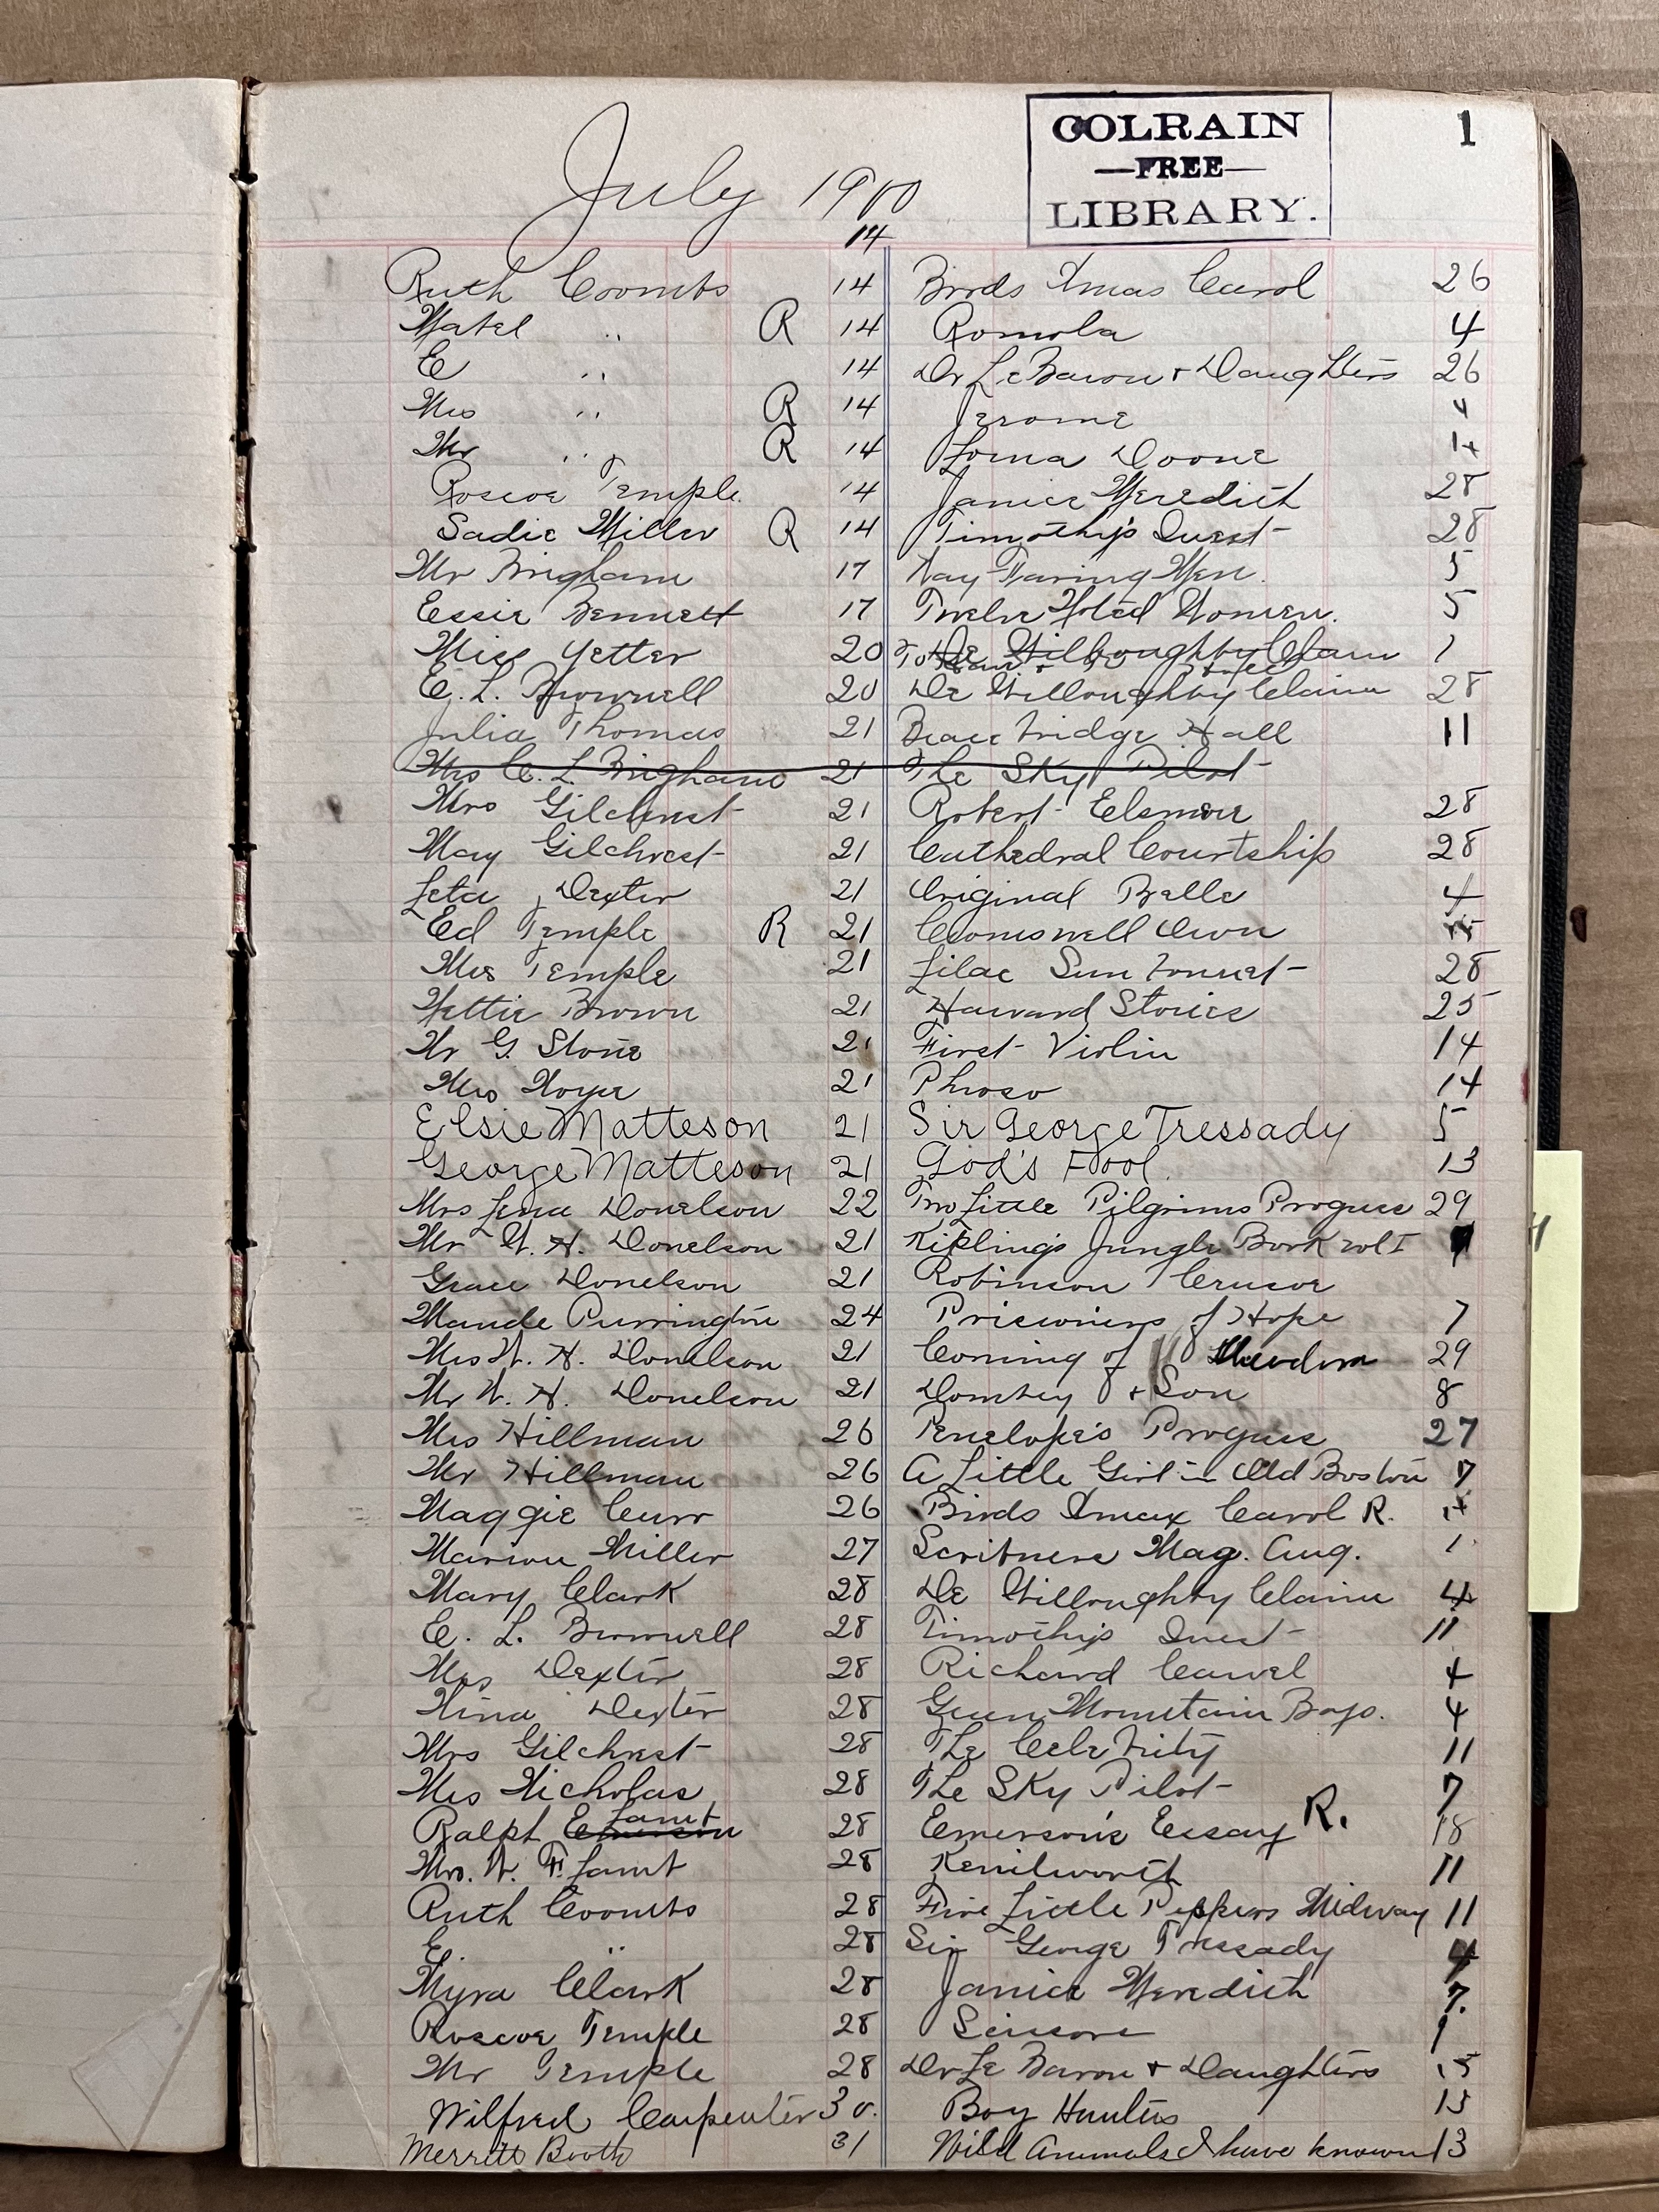 COLRAIN
—FREE—
LIBRARY.
1
July 1900
14
Ruth Coombs 14 Birds Xmas Carol 26
Mabel " R 14 Romola 4
E " 14 Dr Le Baron & Daughters 26
Mrs " R 14 Jerome 4
Mr " R 14 Lorna Doone 14
Roscoe Temple. 14 Janice Meredith 28
Sadie Miller R 14 Timothy's Quest 28
Mr Brigham 17 Way Faring Men. 5
Essie Bennett 17 Twelve Noted Women. 5
Miss Yetter 20 To De Willoughby Claim 1
E. L. Brownell 20 De Willoughby Claim 28
Julia Thomas 21 Brace bridge Hall 11
Mrs C. L. Brigham 21 The Sky Pilot
Mrs Gilchrest 21 Robert Elsmere 28
May Gilchrest 21 Cathedral Courtship 28
Leta Dexter 21 Original Belle 4
Ed Temple R 21 Cromswell Own
Mrs Temple 21 Lilac Sun bonnet 28
Nettie Brown 21 Harvard Stories 25
Mr G. Stone 21 First Violin 14
Mrs Noyes 21 Phroso 14
Elsie Matteson 21 Sir George Tressady 5
George Matteson 21 God's Fool. 13
Mrs Lena Donelson 22 Two Little Pilgrims Progress 29
Mr W. H. Donelson 21 Kipling's Jungle Book vol I
Grace Donelson 21 Robinson Crusoe
Maude Purrington 24 Prisoners of Hope 7
Mrs W. H. Donelson 21 Coming of 29
Mr W. H. Donelson 21 Dombey & Son 8
Mrs Hillman 26 Penelope's Progress 27
Mr Hillman 26 A Little Girl in Old Boston 7
Maggie Curr 26 Birds Xmax Carol R.
Marion Miller 27 Scribners Mag. Aug. 1
Mary Clark 28 De Willoughby Claim 4
E. L. Brownell 28 Timothy's Quest 11
Mrs Dexter 28 Richard Carvel 4
Nina Dexter 28 Green Mountain Boys. 4
Mrs Gilchrest 28 The Celebrity 11
Mrs Nicholas 28 The Sky Pilot 7
Lamt
Ralph Emerson 28 Emerson's Essay R. 18
Mrs. W. F. Lamt 28 Kenilworth 11
Ruth Coombs 28 Five Little Peppers Midway 11
E. " 28 Sir George Tressady 4
Myra Clark 28 Janice Meredith 7.
Roscoe Temple 28 Scissors 1
Mr Temple 28 Dr Le Baron & Daughters 15
Wilfred Carpenter 30. Boy Hunters 13
Merritt Booth 31 Wild Animals I have known 13